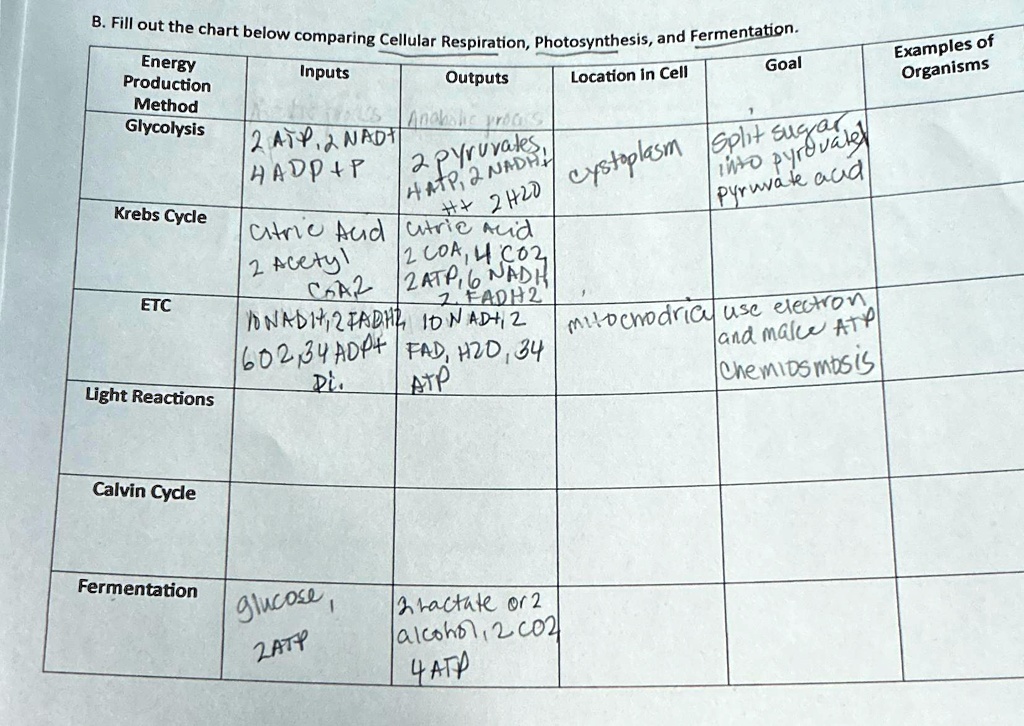 B. Fill out the chart below comparing Cellular Respiration, Photosynthesis, and Fermentation.
Energy
Production
Method
Inputs
Outputs
Location in Cell
Goal
Examples of
Organisms
Anabolic
Glycolysis
2 ATP, 2 NAD+
4 ADP + P
2 pyruvates,
4 ATP, 2 NADH+
H+ 2 H2O
cystoplasm
Split sugar
into pyruvate
pyruvate acid
Krebs Cycle
Citric Acid
2 Acetyl
CoA2
citric Acid
2 COA, 4 CO2
2 ATP, 6 NADH
2 FADH2
ETC
10 NADH, 2 FADH2
6O2, 34 ADP+
Pi.
10 NAD+, 2
FAD, H2O, 34
ATP
mitochodria
use electron
and make ATP
Chemiosmosis
Light Reactions
Calvin Cycle
Fermentation
glucose,
2ATP
2 lactate or 2
alcohol, 2 CO2
4 ATP